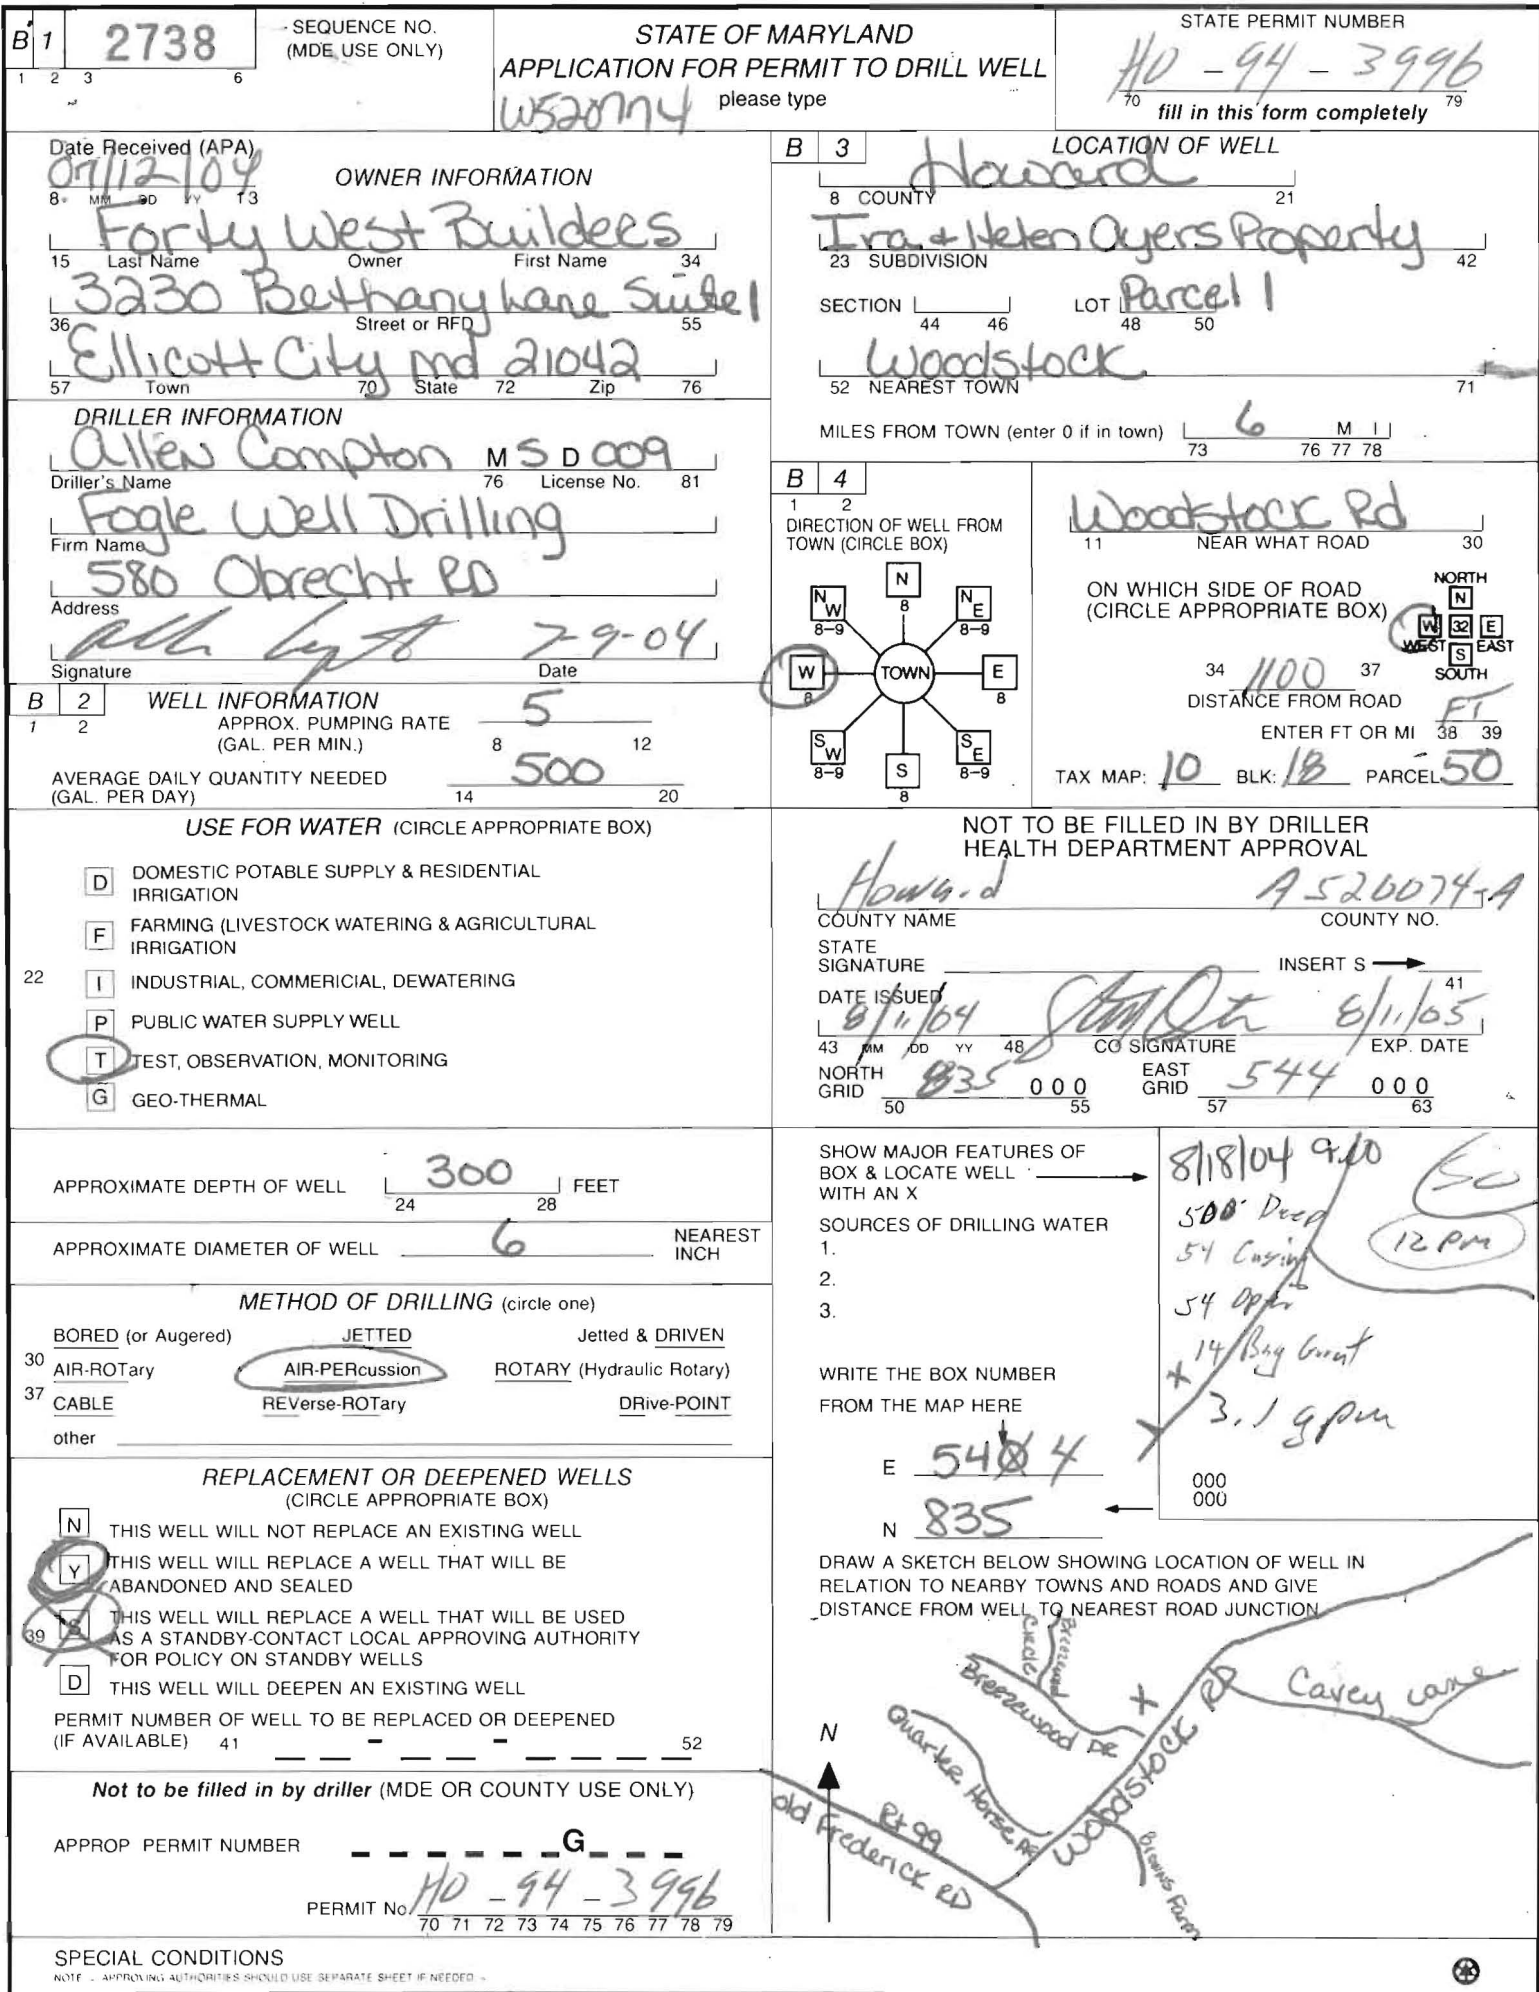 B 1 2738
1 2 3 6
SEQUENCE NO.
(MDE USE ONLY)
STATE OF MARYLAND
APPLICATION FOR PERMIT TO DRILL WELL
please type
STATE PERMIT NUMBER
HO - 94 - 3996
70 79
fill in this form completely
Date Received (APA)
07/12/04
8 MM DD YY 13
OWNER INFORMATION
Forty West Builders
15 Last Name Owner First Name 34
3230 Bethany Lane Suite 1
36 Street or RFD 55
Ellicott City Md 21042
57 Town 70 State 72 Zip 76
DRILLER INFORMATION
Allen Compton M S D 009
Driller's Name 76 License No. 81
Fogle Well Drilling
Firm Name
580 Obrecht RD
Address
7-9-04
Signature Date
B 2
1 2
WELL INFORMATION
APPROX. PUMPING RATE
(GAL. PER MIN.) 5
8 12
AVERAGE DAILY QUANTITY NEEDED
(GAL. PER DAY) 500
14 20
USE FOR WATER (CIRCLE APPROPRIATE BOX)
D DOMESTIC POTABLE SUPPLY & RESIDENTIAL
IRRIGATION
F FARMING (LIVESTOCK WATERING & AGRICULTURAL
IRRIGATION
22 I INDUSTRIAL, COMMERICIAL, DEWATERING
P PUBLIC WATER SUPPLY WELL
T TEST, OBSERVATION, MONITORING
G GEO-THERMAL
APPROXIMATE DEPTH OF WELL 300 FEET
24 28
APPROXIMATE DIAMETER OF WELL 6 NEAREST
INCH
METHOD OF DRILLING (circle one)
BORED (or Augered) JETTED Jetted & DRIVEN
30 AIR-ROTary AIR-PERcussion ROTARY (Hydraulic Rotary)
37 CABLE REVerse-ROTary DRive-POINT
other
REPLACEMENT OR DEEPENED WELLS
(CIRCLE APPROPRIATE BOX)
N THIS WELL WILL NOT REPLACE AN EXISTING WELL
Y THIS WELL WILL REPLACE A WELL THAT WILL BE
ABANDONED AND SEALED
39 S THIS WELL WILL REPLACE A WELL THAT WILL BE USED
AS A STANDBY-CONTACT LOCAL APPROVING AUTHORITY
FOR POLICY ON STANDBY WELLS
D THIS WELL WILL DEEPEN AN EXISTING WELL
PERMIT NUMBER OF WELL TO BE REPLACED OR DEEPENED
(IF AVAILABLE) 41 - - 52
Not to be filled in by driller (MDE OR COUNTY USE ONLY)
APPROP PERMIT NUMBER G
PERMIT No. HO - 94 - 3996
70 71 72 73 74 75 76 77 78 79
SPECIAL CONDITIONS
NOTE - APPROVING AUTHORITIES SHOULD USE SEPARATE SHEET IF NEEDED -
B 3
LOCATION OF WELL
Howard
8 COUNTY 21
Ira & Helen Ayers Property
23 SUBDIVISION 42
SECTION LOT Parcel 1
44 46 48 50
Woodstock
52 NEAREST TOWN 71
MILES FROM TOWN (enter 0 if in town) 6 M I
73 76 77 78
B 4
1 2
DIRECTION OF WELL FROM
TOWN (CIRCLE BOX)
N
8
NW
8-9
NE
8-9
W
8
TOWN
E
8
SW
8-9
S
8
SE
8-9
Woodstock Rd
11 NEAR WHAT ROAD 30
ON WHICH SIDE OF ROAD
(CIRCLE APPROPRIATE BOX)
NORTH
N
W 32 E
WEST EAST
S
SOUTH
34 1100 37
DISTANCE FROM ROAD
ENTER FT OR MI FT
38 39
TAX MAP: 10 BLK: 18 PARCEL 50
NOT TO BE FILLED IN BY DRILLER
HEALTH DEPARTMENT APPROVAL
Howard A520074-A
COUNTY NAME COUNTY NO.
STATE
SIGNATURE INSERT S
41
DATE ISSUED
8/11/04 8/11/05
43 MM DD YY 48 CO SIGNATURE EXP. DATE
NORTH
GRID 835 0 0 0
50 55
EAST
GRID 544 0 0 0
57 63
SHOW MAJOR FEATURES OF
BOX & LOCATE WELL
WITH AN X
SOURCES OF DRILLING WATER
1.
2.
3.
8/18/04
500' Deep
54 Casing
54
14 Bag Grout
3.1 gpm
12 PM
WRITE THE BOX NUMBER
FROM THE MAP HERE
E 544
N 835
000
000
DRAW A SKETCH BELOW SHOWING LOCATION OF WELL IN
RELATION TO NEARBY TOWNS AND ROADS AND GIVE
DISTANCE FROM WELL TO NEAREST ROAD JUNCTION
N
Breezewood Circle
Breezewood DR
Quarter Horse DR
Woodstock RD
Cavey Lane
Browns Farm
Rt 99
old Frederick RD